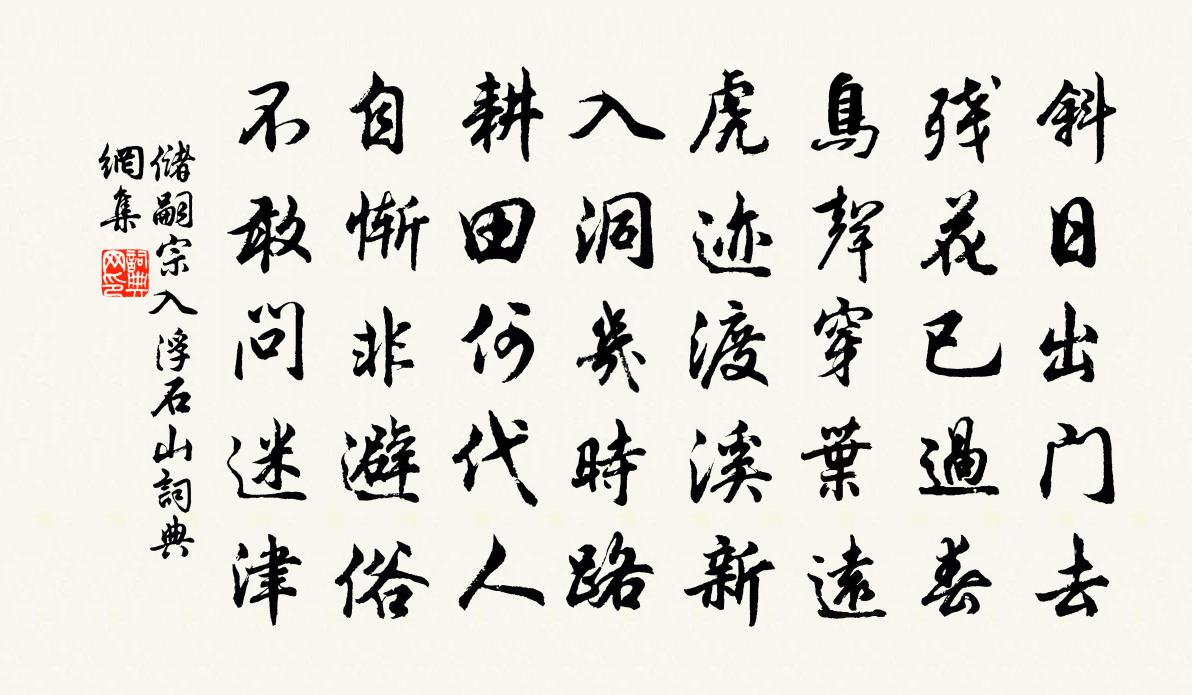 斜日出门去
残花已過春
鳥聲穿葉遠
虎迹渡溪新
入洞幾時路
耕田何代人
自慚非避俗
不敢問迷津
儲嗣宗入浮石山詞典
網集
詞典
网印